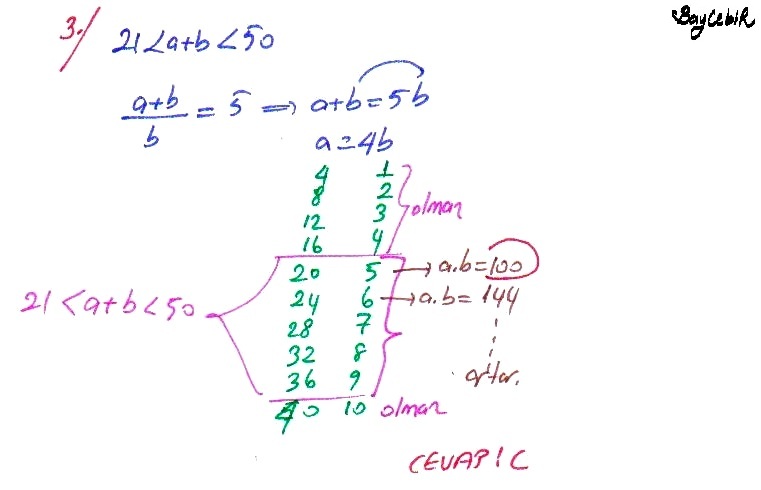 BayCebir
3./ 21<a+b<50
a+b/b = 5 ⟹ a+b=5b
a=4b
4 1
8 2
12 3
16 4
olmaz
20 5 → a.b=100
24 6 → a.b=144
21<a+b<50
28 7
32 8
36 9
artar.
40 10 olmaz
CEVAP! C